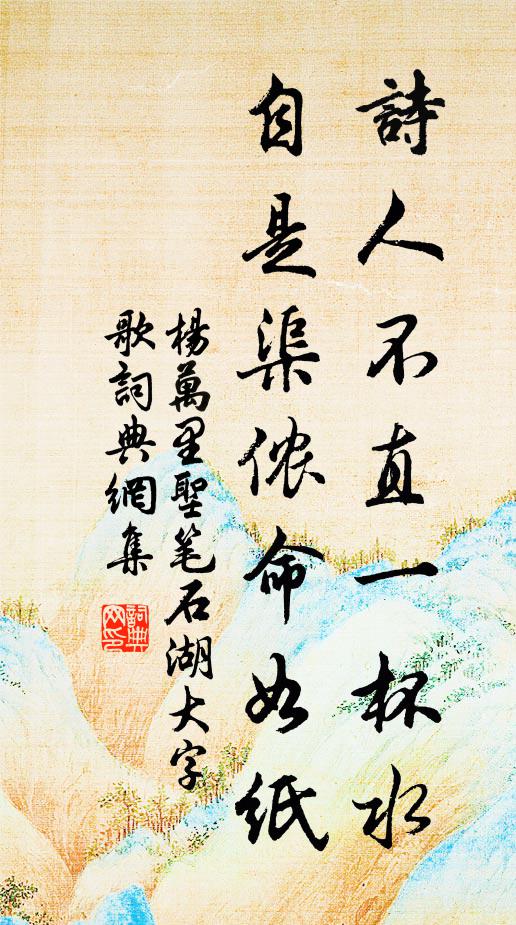 詩人不直一杯水
自是渠侬命如纸
楊萬里聖笔石湖大字
歌詞典網集
詞典